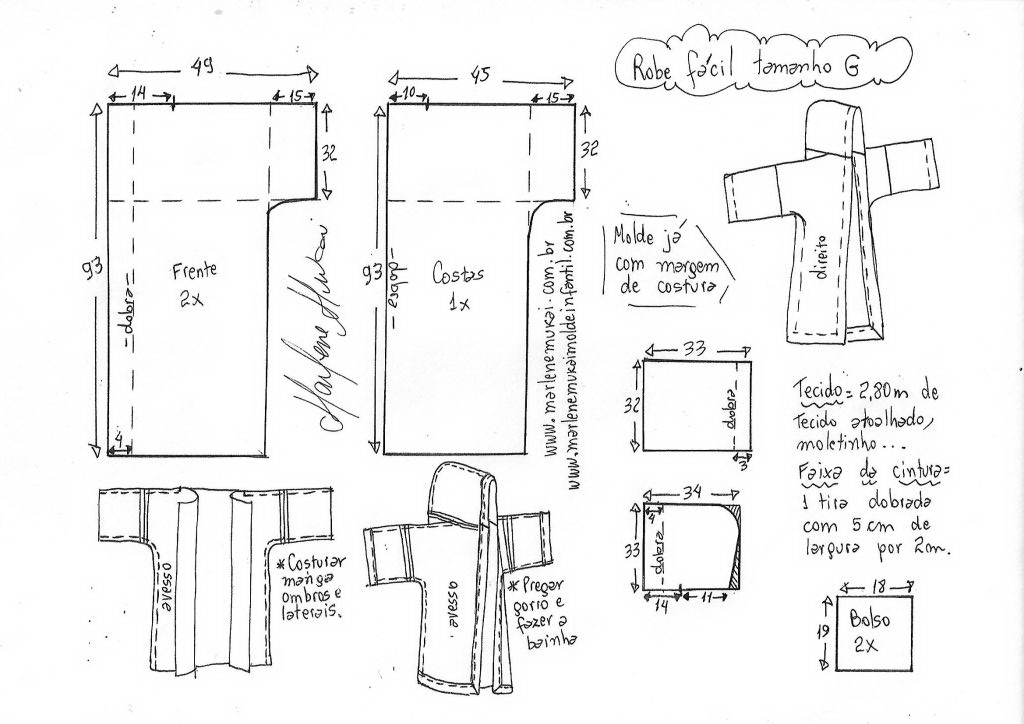 Robe fácil tamanho G
49
14
15
32
93
Frente
2x
-dobra-
4
45
10
15
32
93
-dobra-
Costas
1x
Marlene Mukai
www.marlenemukai.com.br
www.marlenemukaimoldeinfantil.com.br
Molde já
com margem
de costura
direito
33
32
dobra
3
34
4
33
dobra
14
11
Tecido = 2,80m de
Tecido atoalhado,
moletinho...
Faixa da cintura=
1 tira dobrada
com 5 cm de
largura por 2m.
18
19
Bolso
2x
avesso
*Costurar
manga
ombros e
laterais.
avesso
*Pregar
gorro e
fazer a
bainha